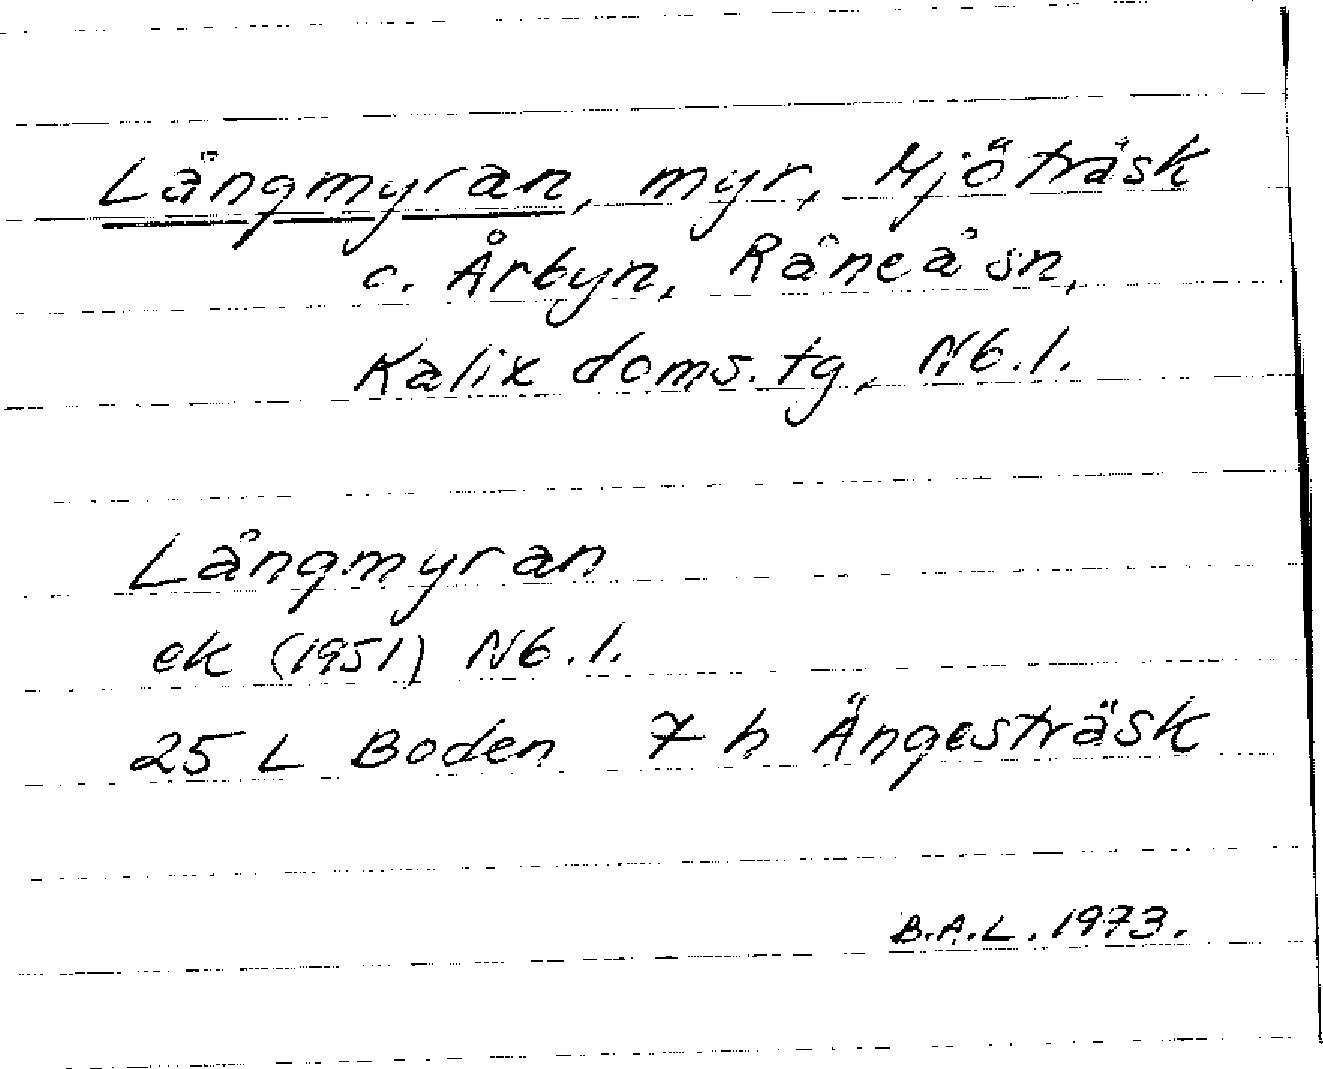 Långmyran, myr, Mjöträsk
o. Årbyn, Råneå sn,
Kalix doms. tg, Nb. l.
Långmyran
ek (1951) Nb. l.
25 L Boden 7 h Ängesträsk
B.A.L. 1973.